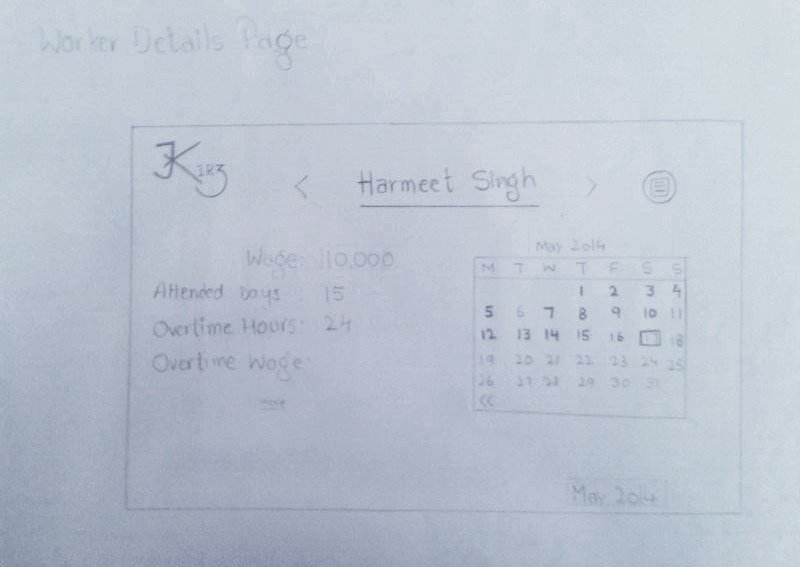 Worker Details Page
< Harmeet Singh >
Wage: 10,000
Attended Days : 15
Overtime Hours: 24
Overtime Wage:
more
May 2014
M T W T F S S
1 2 3 4
5 6 7 8 9 10 11
12 13 14 15 16 17 18
19 20 21 22 23 24 25
26 27 28 29 30 31
<<
May 2014